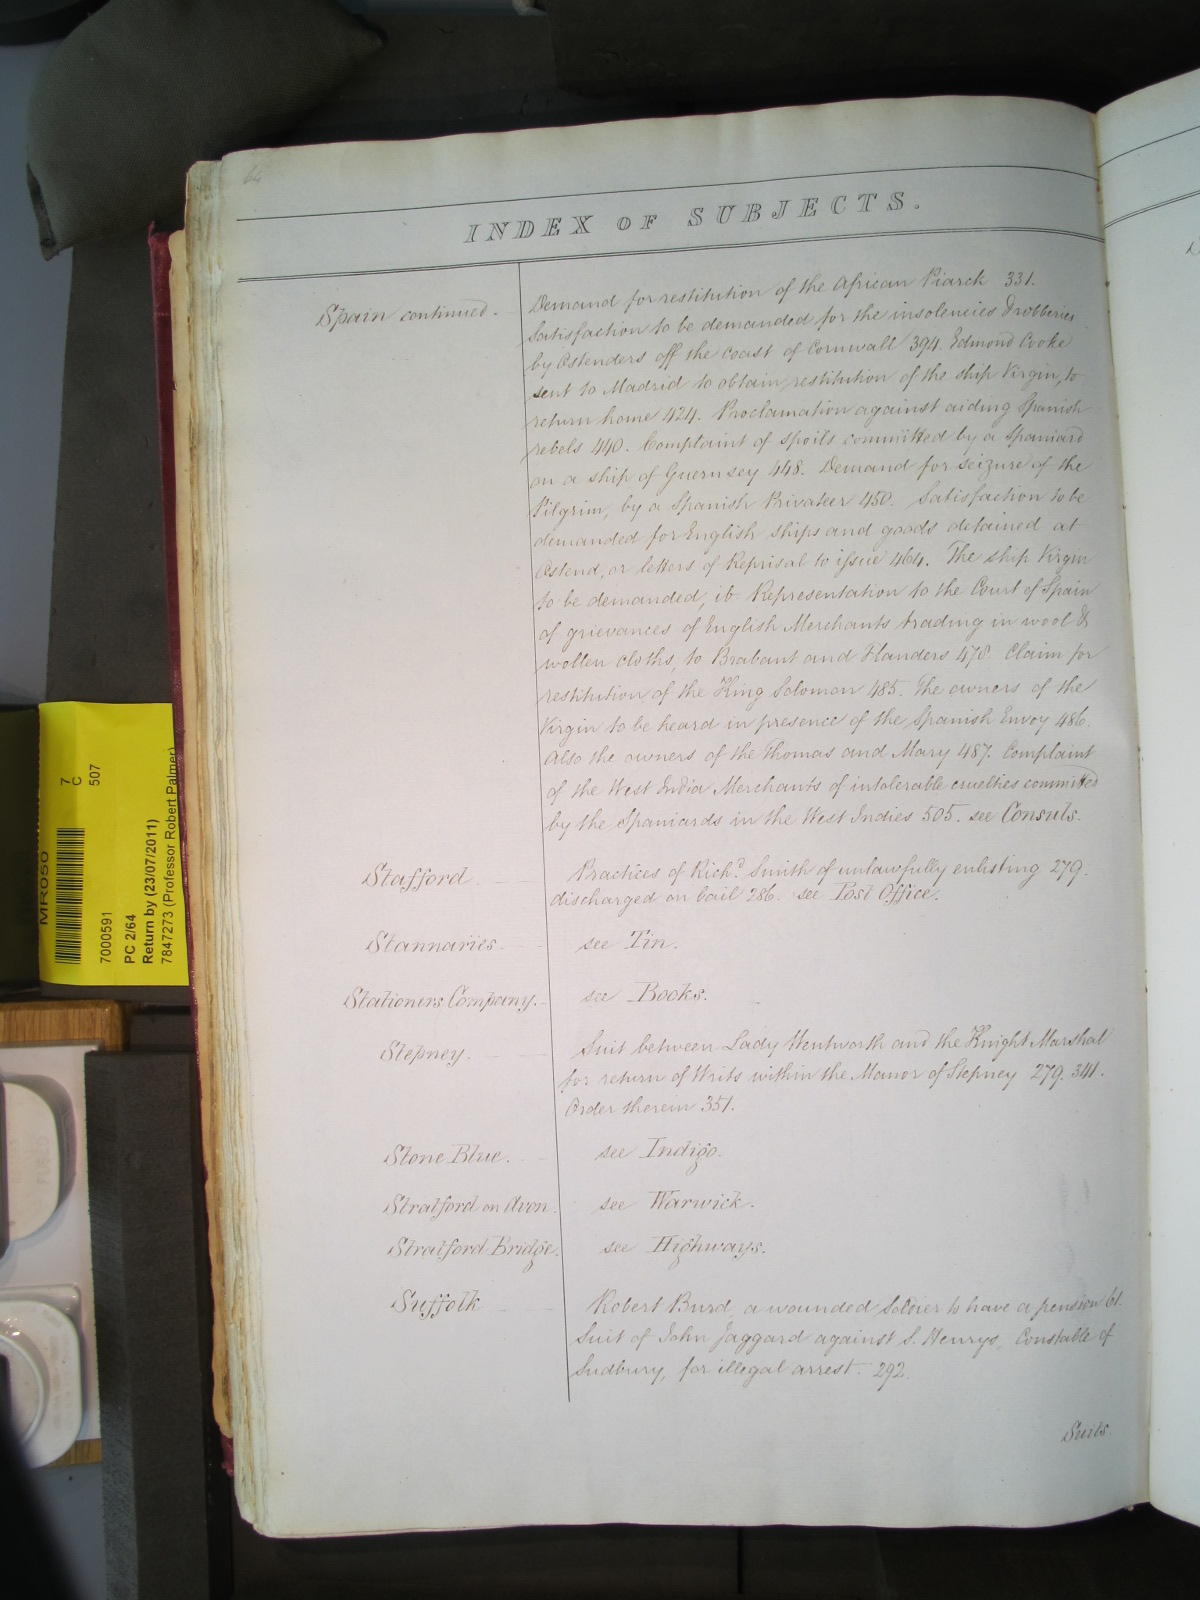 64
INDEX OF SUBJECTS.
Spain continued.
Demand for restitution of the African Piarck 331.
Satisfaction to be demanded for the insolencies & robberies
by Ostenders off the coast of Cornwall 394. Edmond Cooke
sent to Madrid to obtain restitution of the ship Virgin, to
return home 424. Proclamation against aiding Spanish
rebels 440. Complaint of spoils committed by a Spaniard
on a ship of Guernsey 448. Demand for seizure of the
Pilgrim, by a Spanish Privateer 450. Satisfaction to be
demanded for English ships and goods detained at
Ostend, or letters of Reprisal to issue 464. The ship Virgin
to be demanded, ib. Representation to the Court of Spain
of grievances of English Merchants trading in wool &
wollen cloths, to Brabant and Flanders 478. Claim for
restitution of the King Solomon 485. The owners of the
Virgin to be heard in presence of the Spanish Envoy 486.
Also the owners of the Thomas and Mary 487. Complaint
of the West India Merchants of intolerable cruelties committed
by the Spaniards in the West Indies 505. see Consuls.
Stafford. Practices of Rich.d Smith of unlawfully enlisting 279.
discharged on bail 286. see Post Office.
Stannaries. see Tin.
Stationers Company. see Books.
Stepney. Suit between Lady Wentworth and the Knight Marshal
for return of Writs within the Manor of Stepney 279. 341.
Order therein 351.
Stone Blue. see Indigo.
Stratford on Avon. see Warwick.
Stratford Bridge. see Highways.
Suffolk Robert Burd, a wounded Soldier to have a pension 61.
Suit of John Jaggard against S. Henrys, Constable of
Sudbury, for illegal arrest. 292.
Suits.
MR050
7
C
507
7000591
PC 2/64
Return by (23/07/2011)
7847273 (Professor Robert Palmer)